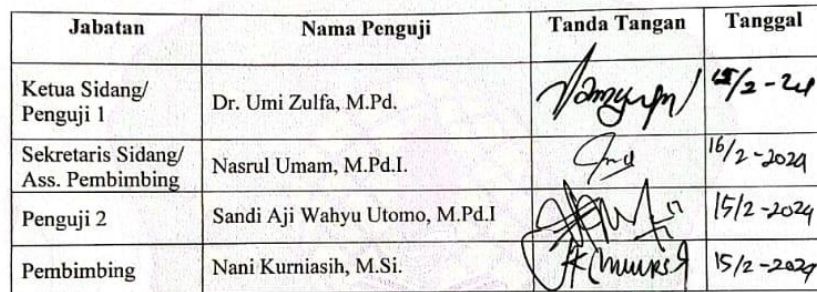 Jabatan Nama Penguji Tanda Tangan Tanggal
Ketua Sidang/
Penguji 1 Dr. Umi Zulfa, M.Pd. 15/2-24
Sekretaris Sidang/
Ass. Pembimbing Nasrul Umam, M.Pd.I. 16/2-2024
Penguji 2 Sandi Aji Wahyu Utomo, M.Pd.I 15/2-2024
Pembimbing Nani Kurniasih, M.Si. 15/2-2024